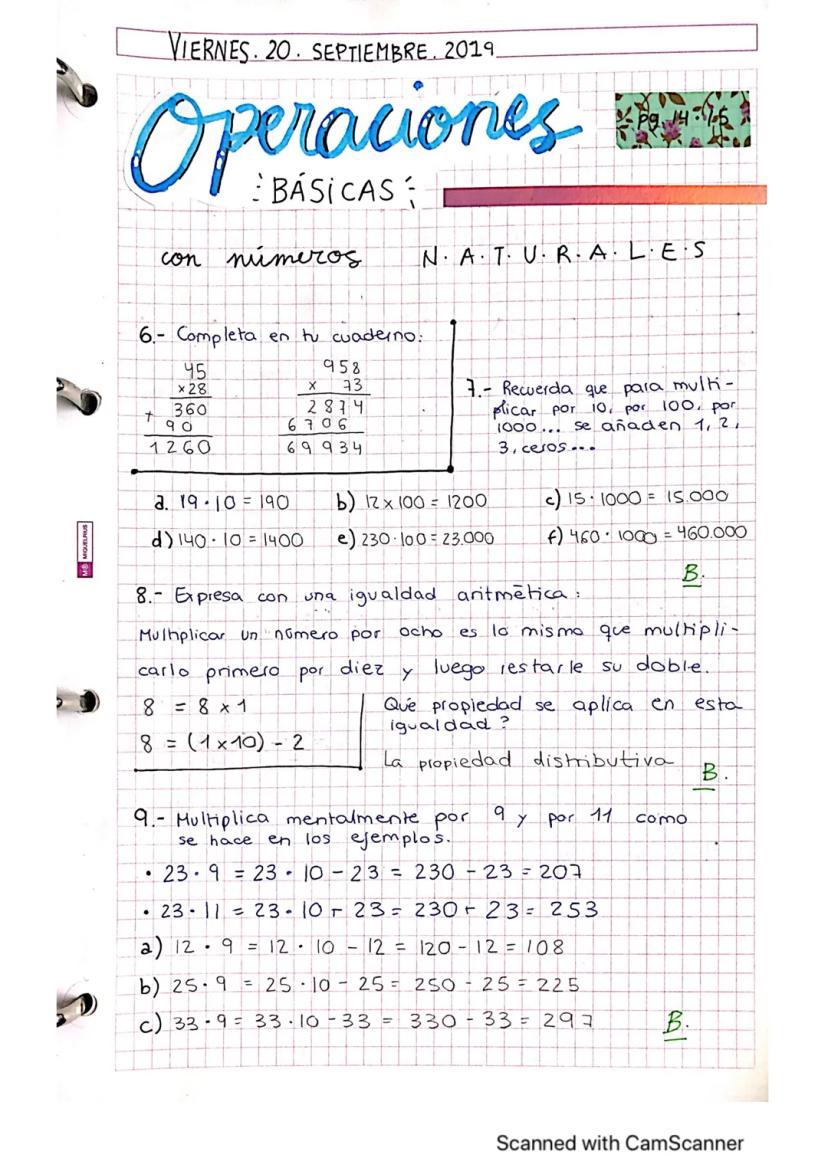 VIERNES. 20. SEPTIEMBRE. 2019
Operaciones
pg. 14-15
BÁSICAS
con números N.A.T.U.R.A.L.E.S
6.- Completa en tu cuaderno:
45
×28
360
+ 90
1260
958
× 73
2874
6706
69934
7.- Recuerda que para multi-
plicar por 10, por 100, por
1000... se añaden 1, 2,
3, ceros...
a. 19·10 = 190 b) 12 x 100 = 1200 c) 15·1000 = 15.000
d) 140·10 = 1400 e) 230·100 = 23.000 f) 460·1000 = 460.000
B.
MIQUELRIUS
8.- Expresa con una igualdad aritmética:
Multiplicar un número por ocho es lo mismo que multipli-
carlo primero por diez y luego restarle su doble.
8 = 8 x 1
8 = (1 x 10) - 2
Qué propiedad se aplica en esta
igualdad?
La propiedad distributiva
B.
9.- Multiplica mentalmente por 9 y por 11 como
se hace en los ejemplos.
• 23·9 = 23·10 - 23 = 230 - 23 = 207
• 23·11 = 23·10 + 23 = 230 + 23 = 253
a) 12·9 = 12·10 - 12 = 120 - 12 = 108
b) 25·9 = 25·10 - 25 = 250 - 25 = 225
c) 33·9 = 33·10 - 33 = 330 - 33 = 297
B.
Scanned with CamScanner